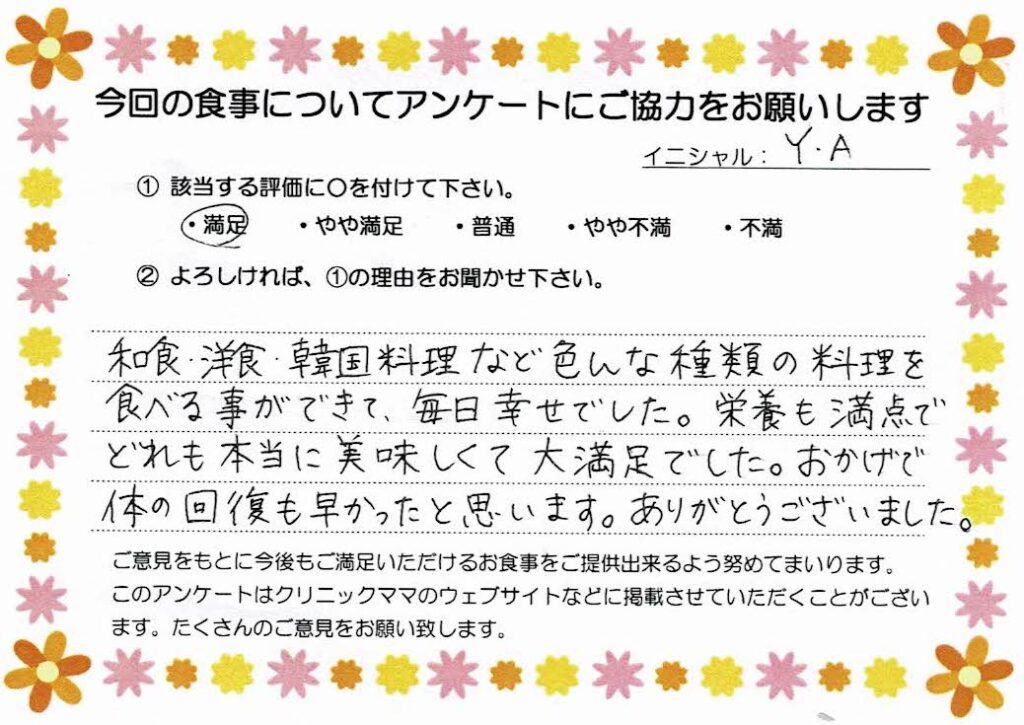 今回の食事についてアンケートにご協力をお願いします
イニシャル： Y.A
① 該当する評価に〇を付けて下さい。
・満足 ・やや満足 ・普通 ・やや不満 ・不満
② よろしければ、①の理由をお聞かせ下さい。
和食・洋食・韓国料理など色んな種類の料理を
食べる事ができて、毎日幸せでした。栄養も満点で
どれも本当に美味しくて大満足でした。おかげで
体の回復も早かったと思います。ありがとうございました。
ご意見をもとに今後もご満足いただけるお食事をご提供出来るよう努めてまいります。
このアンケートはクリニックママのウェブサイトなどに掲載させていただくことがござい
ます。たくさんのご意見をお願い致します。